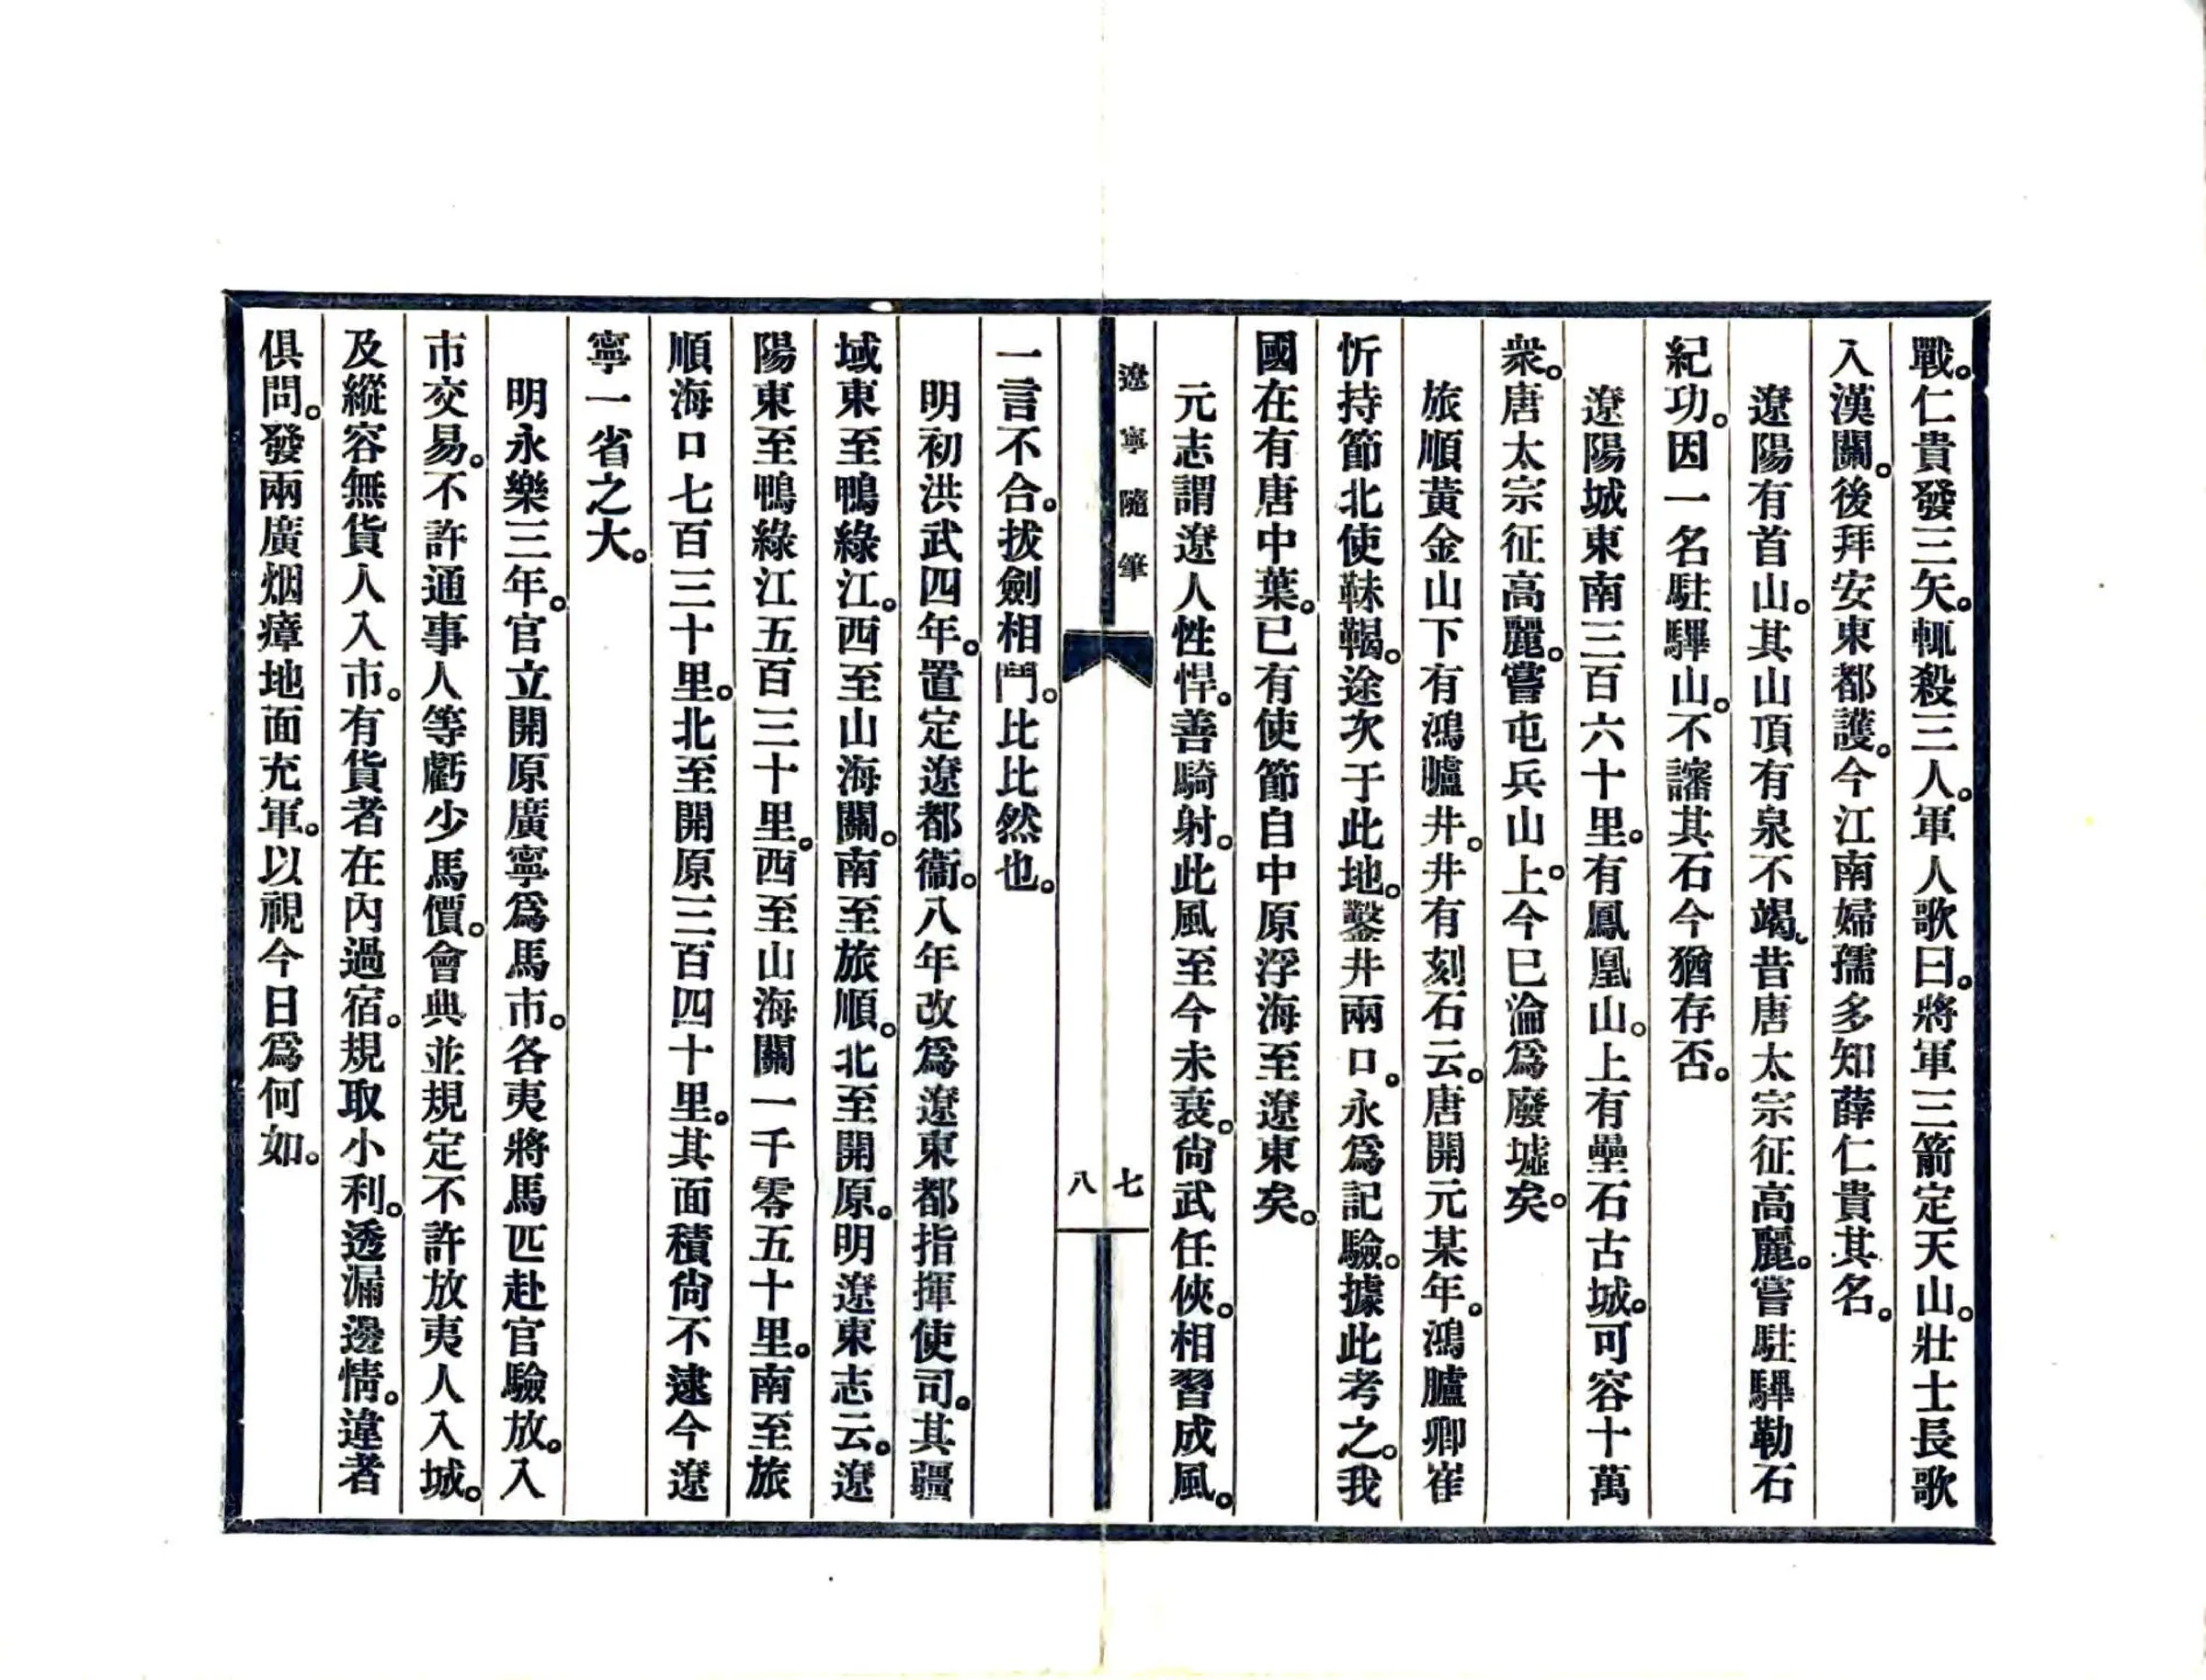 戰。仁貴發三矢。輒殺三人。軍人歌曰。將軍三箭定天山。壯士長歌
入漢關。後拜安東都護。今江南婦孺多知薛仁貴其名。
遼陽有首山。其山頂有泉不竭。昔唐太宗征高麗。嘗駐驆勒石
紀功。因一名駐驆山。不諳其石今猶存否。
遼陽城東南三百六十里。有鳳凰山。上有壘石古城。可容十萬
衆。唐太宗征高麗。嘗屯兵山上。今已淪爲廢墟矣。
旅順黃金山下有鴻臚井。井有刻石云。唐開元某年。鴻臚卿崔
忻持節北使靺鞨。途次于此地。鑿井兩口。永爲記驗。據此考之。我
國在有唐中葉。已有使節自中原浮海至遼東矣。
元志謂遼人性悍。善騎射。此風至今未衰。尙武任俠。相習成風。
遼寧隨筆
七
八
一言不合。拔劍相鬥。比比然也。
明初洪武四年。置定遼都衞。八年改爲遼東都指揮使司。其疆
域東至鴨綠江。西至山海關。南至旅順。北至開原。明遼東志云。遼
陽東至鴨綠江五百三十里。西至山海關一千零五十里。南至旅
順海口七百三十里。北至開原三百四十里。其面積尙不逮今遼
寧一省之大。
明永樂三年。官立開原廣寧爲馬市。各夷將馬匹赴官驗放。入
市交易。不許通事人等虧少馬價。會典並規定不許放夷人入城。
及縱容無貨人入市。有貨者在內過宿。規取小利。透漏邊情。違者
俱問。發兩廣烟瘴地面充軍。以視今日爲何如。